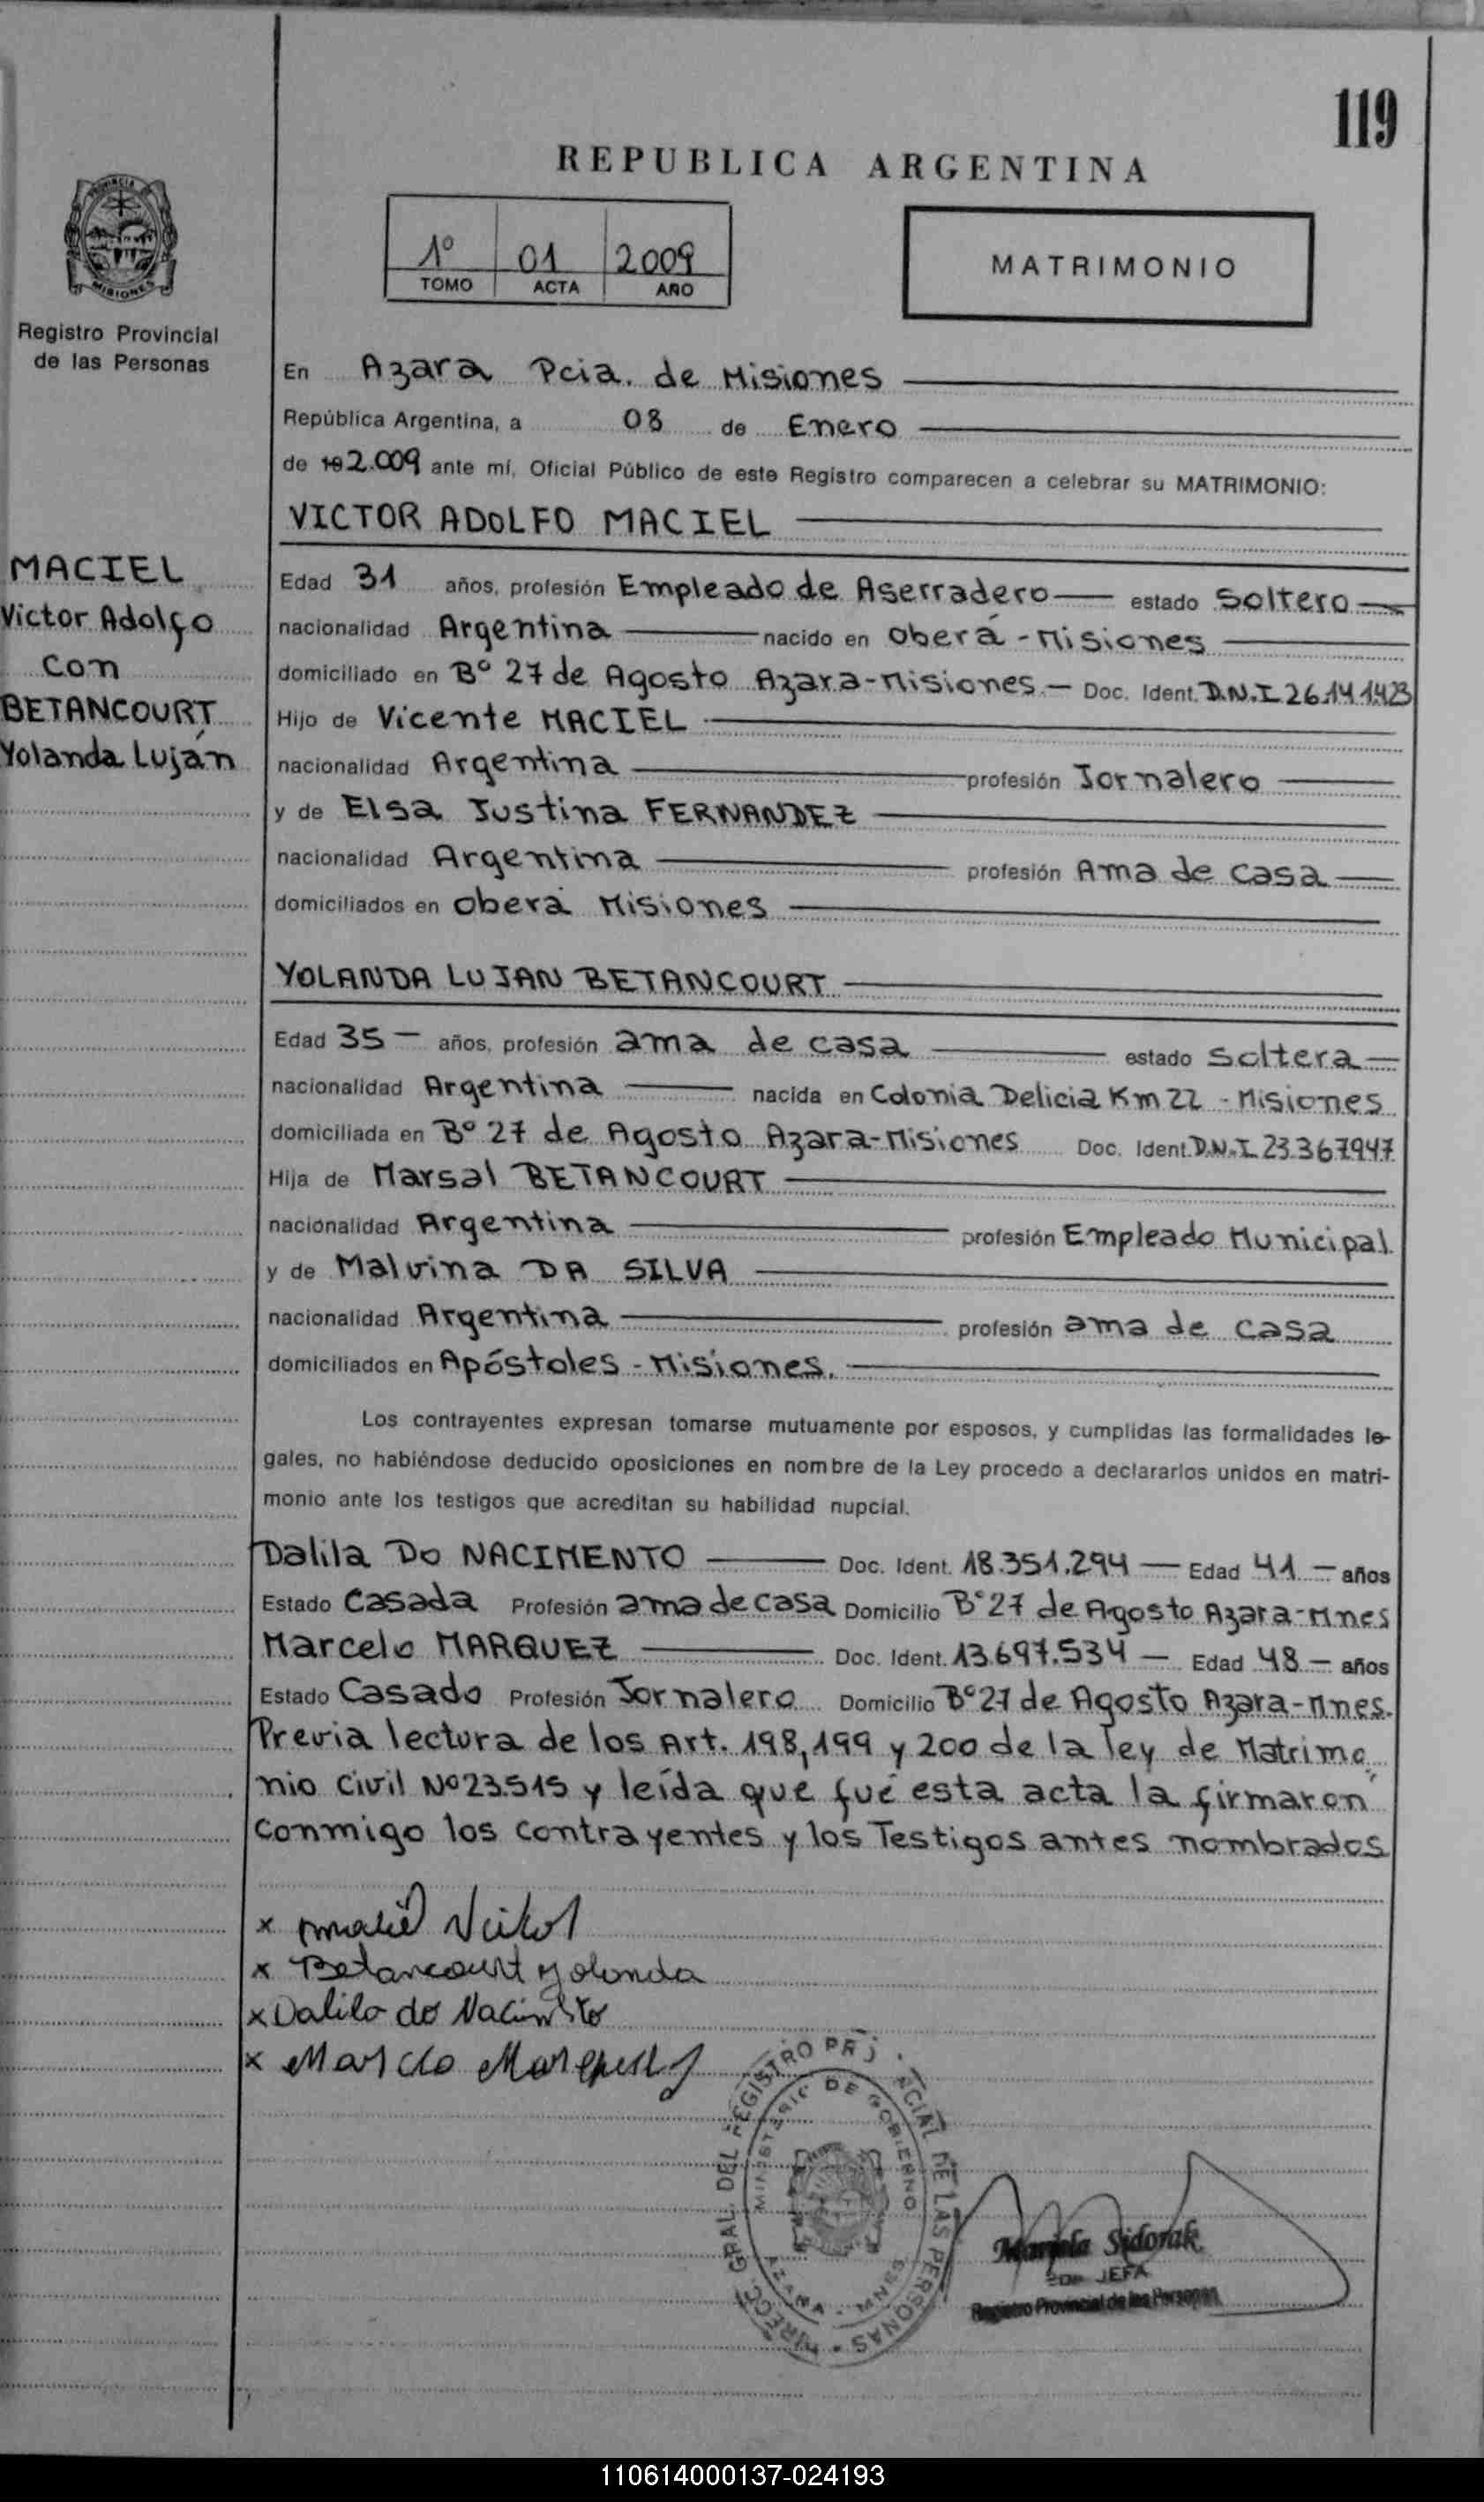 119
REPUBLICA ARGENTINA
PROVINCIA
MISIONES
1º 01 2009
TOMO ACTA AÑO
MATRIMONIO
Registro Provincial
de las Personas
En Azara Pcia. de Misiones
República Argentina, a 08 de Enero
de 192.009 ante mí, Oficial Público de este Registro comparecen a celebrar su MATRIMONIO:
VICTOR ADOLFO MACIEL
MACIEL
Victor Adolfo
con
BETANCOURT
Yolanda Luján
Edad 31 años, profesión Empleado de Aserradero estado Soltero
nacionalidad Argentina nacido en Oberá - Misiones
domiciliado en Bº 27 de Agosto Azara-Misiones.- Doc. Ident. D.N.I 26.141.423
Hijo de Vicente MACIEL
nacionalidad Argentina profesión Jornalero
y de Elsa Justina FERNANDEZ
nacionalidad Argentina profesión Ama de casa
domiciliados en Oberá Misiones
YOLANDA LUJAN BETANCOURT
Edad 35 - años, profesión ama de casa estado Soltera
nacionalidad Argentina nacida en Colonia Delicia Km 22 - Misiones
domiciliada en Bº 27 de Agosto Azara-Misiones Doc. Ident. D.N.I. 23.367.947
Hija de Marsal BETANCOURT
nacionalidad Argentina profesión Empleado Municipal
y de Malvina DA SILVA
nacionalidad Argentina profesión ama de casa
domiciliados en Apóstoles - Misiones.
Los contrayentes expresan tomarse mutuamente por esposos, y cumplidas las formalidades le-
gales, no habiéndose deducido oposiciones en nombre de la Ley procedo a declararlos unidos en matri-
monio ante los testigos que acreditan su habilidad nupcial.
Dalila Do NACIMENTO Doc. Ident. 18.351.294 - Edad 41 - años
Estado Casada Profesión ama de casa Domicilio Bº 27 de Agosto Azara-Mnes
Marcelo MARQUEZ Doc. Ident. 13.697.534 - Edad 48 - años
Estado Casado Profesión Jornalero Domicilio Bº 27 de Agosto Azara-Mnes.
Previa lectura de los Art. 198, 199 y 200 de la ley de Matrimo
nio Civil Nº 23.515 y leída que fué esta acta la firmaron
conmigo los contrayentes y los Testigos antes nombrados
x Maciel Victor
x Betancourt Yolanda
x Dalila do
x Marcelo
DIRECC. GRAL. DEL REGISTRO PROVINCIAL DE LAS PERSONAS
MINISTERIO DE GOBIERNO
AZARA - MNES
Mariela Sidorak
JEFA
Registro Provincial de las Personas
110614000137-024193